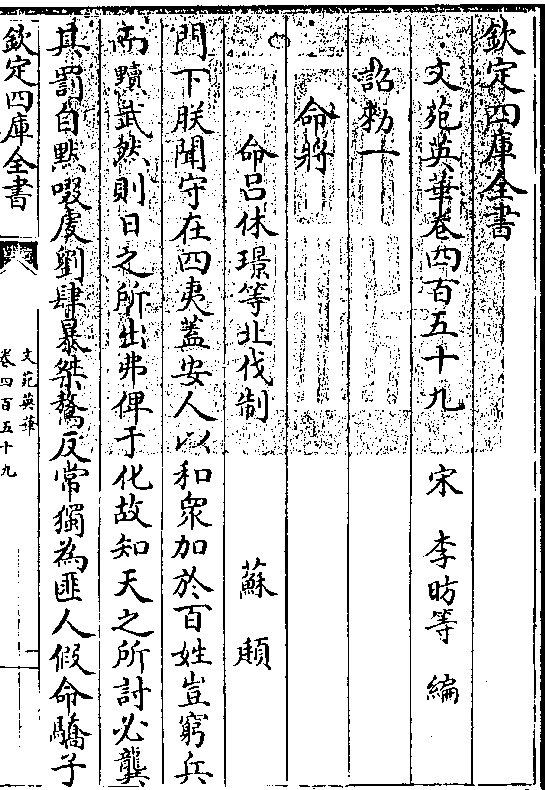 欽定四庫全書
文苑英華卷四百五十九
宋 李昉等 編
詔勅一
命將
命吕休璟等北伐制
蘇頲
門下朕聞守在四夷蓋安人以和衆加於百姓豈窮兵
而黷武然則日之所出弗俾于化故知天之所討必龔
其罰自默啜虔劉肆暴桀驁反常獨為匪人假命驕子
欽定四庫全書
文苑英華
卷四百五十九
一